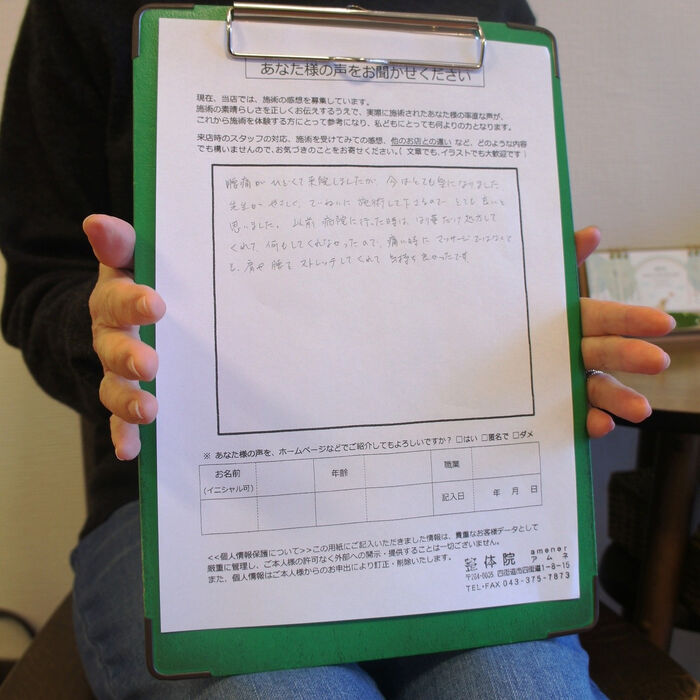 あなた様の声をお聞かせください
現在、当店では、施術の感想を募集しています。
施術の素晴らしさを正しくお伝えするうえで、実際に施術されたあなた様の率直な声が、
これから施術を体験する方にとって参考になり、私どもにとっても何よりの力となります。
来店時のスタッフの対応、施術を受けてみての感想、他のお店との違い など、どのような内容
でも構いませんので、お気づきのことをお寄せください。( 文章でも、イラストでも大歓迎です )
腰痛がひどくて来院しましたが、今はとても楽になりました
先生がやさしく、ていねいに施術して下さるので とても良いと
思いました。以前 病院に行った時は、はり薬だけ処方して
くれて、何もしてくれなかったので、痛い時に マッサージではなくて
も、肩や腰を ストレッチしてくれて 気持ち良かったです
※ あなた様の声を、ホームページなどでご紹介してもよろしいですか? □はい □匿名で □ダメ
お名前 年齢 職業
(イニシャル可)
記入日 年 月 日
<<個人情報保護について>>この用紙にご記入いただきました情報は、貴重なお客様データとして
厳重に管理し、ご本人様の許可なく外部への開示・提供することは一切ございません。
また、個人情報はご本人様からのお申出により訂正・削除いたします。
整体院 amener アムネ
〒284-0005 四街道市四街道1-8-15
TEL・FAX 043-375-7873